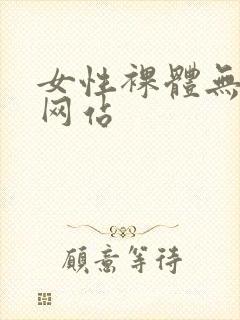 女性裸體無
网站
願意等待